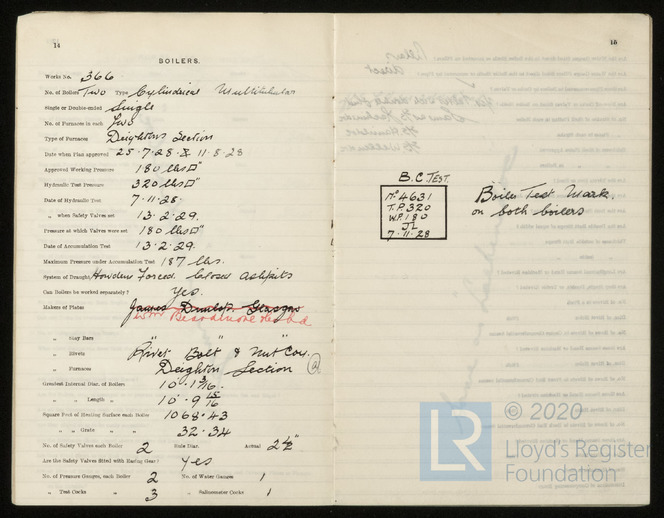 14
BOILERS.
Works No. 366
No. of Boilers Two Type Cylindrical Multitubular
Single or Double-ended Single
No. of Furnaces in each Two
Type of Furnaces Deighton Section
Date when Plan approved 25.7.28. & 11.8.28
Approved Working Pressure 180 lbs □"
Hydraulic Test Pressure 320 lbs □"
Date of Hydraulic Test 7.11.28.
„ when Safety Valves set 13.2.29.
Pressure at which Valves were set 180 lbs □"
Date of Accumulation Test 13.2.29.
Maximum Pressure under Accumulation Test 187 lbs.
System of Draught Howden Forced. Closed Ashpits
Can Boilers be worked separately? Yes.
Makers of Plates James Dunlop Glasgow
Beardmore
„ Stay Bars " " "
„ Rivets Rivet Bolt & Nut Coy.
„ Furnaces Deighton Section
Greatest Internal Diam. of Boilers 10.1 3/16.
„ „ Length „ 10.9 15/16
Square Feet of Heating Surface each Boiler 1068.43
„ „ Grate „ „ 32.34
No. of Safety Valves each Boiler 2 Rule Diam. Actual 2½"
Are the Safety Valves fitted with Easing Gear? Yes
No. of Pressure Gauges, each Boiler 2 No. of Water Gauges 1
„ Test Cocks „ 3 „ Salinometer Cocks 1
15
B.C. TEST.
No 4631
T.P. 320
W.P. 180
JL
7.11.28
Boiler Test Mark.
on both boilers
© 2020
LR
Lloyd's Register
Foundation